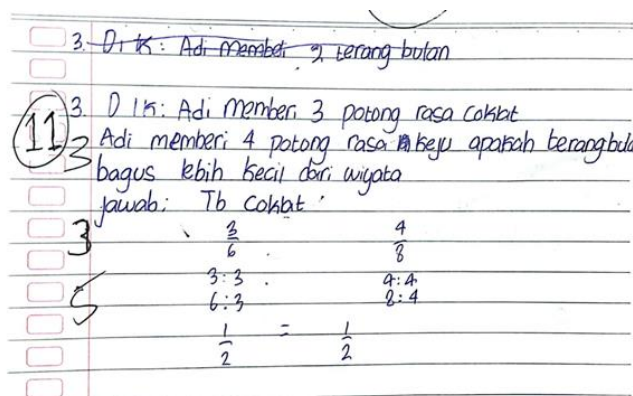 3. Dik: Adi member 2 terang bulan
11
3. Dik: Adi memberi 3 potong rasa coklat
3
Adi memberi 4 potong rasa keju apakah terangbula
bagus lebih kecil dari wiyata
jawab: Tb coklat
3
3/6 4/8
3:3 4:4
6:3 8:4
5
1/2 = 1/2